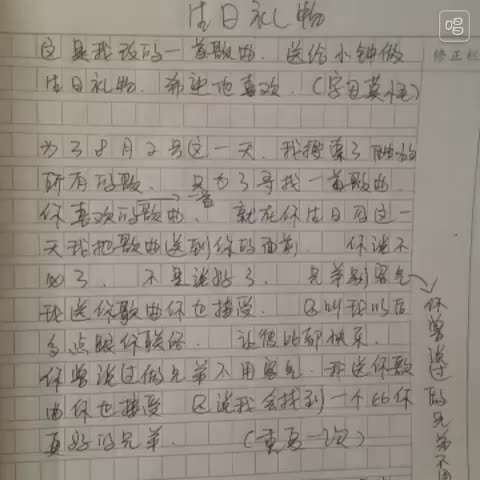 生日礼物
这是我改的一首歌曲. 送给小钟做
生日礼物. 希望他喜欢. (字丑莫怪)
为了8月2号这一天. 我搜索了
所有的歌. 只为了寻找一首歌曲.
你喜欢的歌曲. 就在你生日的这一
一首
天我把歌曲送到你的面前. 你说不
如了. 不是说好了. 兄弟别客气
我送你歌曲你也接受. 只叫我以后
多点跟你联系. 让彼此都快乐.
你曾说过做兄弟不用客气. 我送你歌
曲你也接受 只说我会找到一个比你
更好的兄弟. (重复一次)
你曾说过的兄弟不用
修正栏
唱